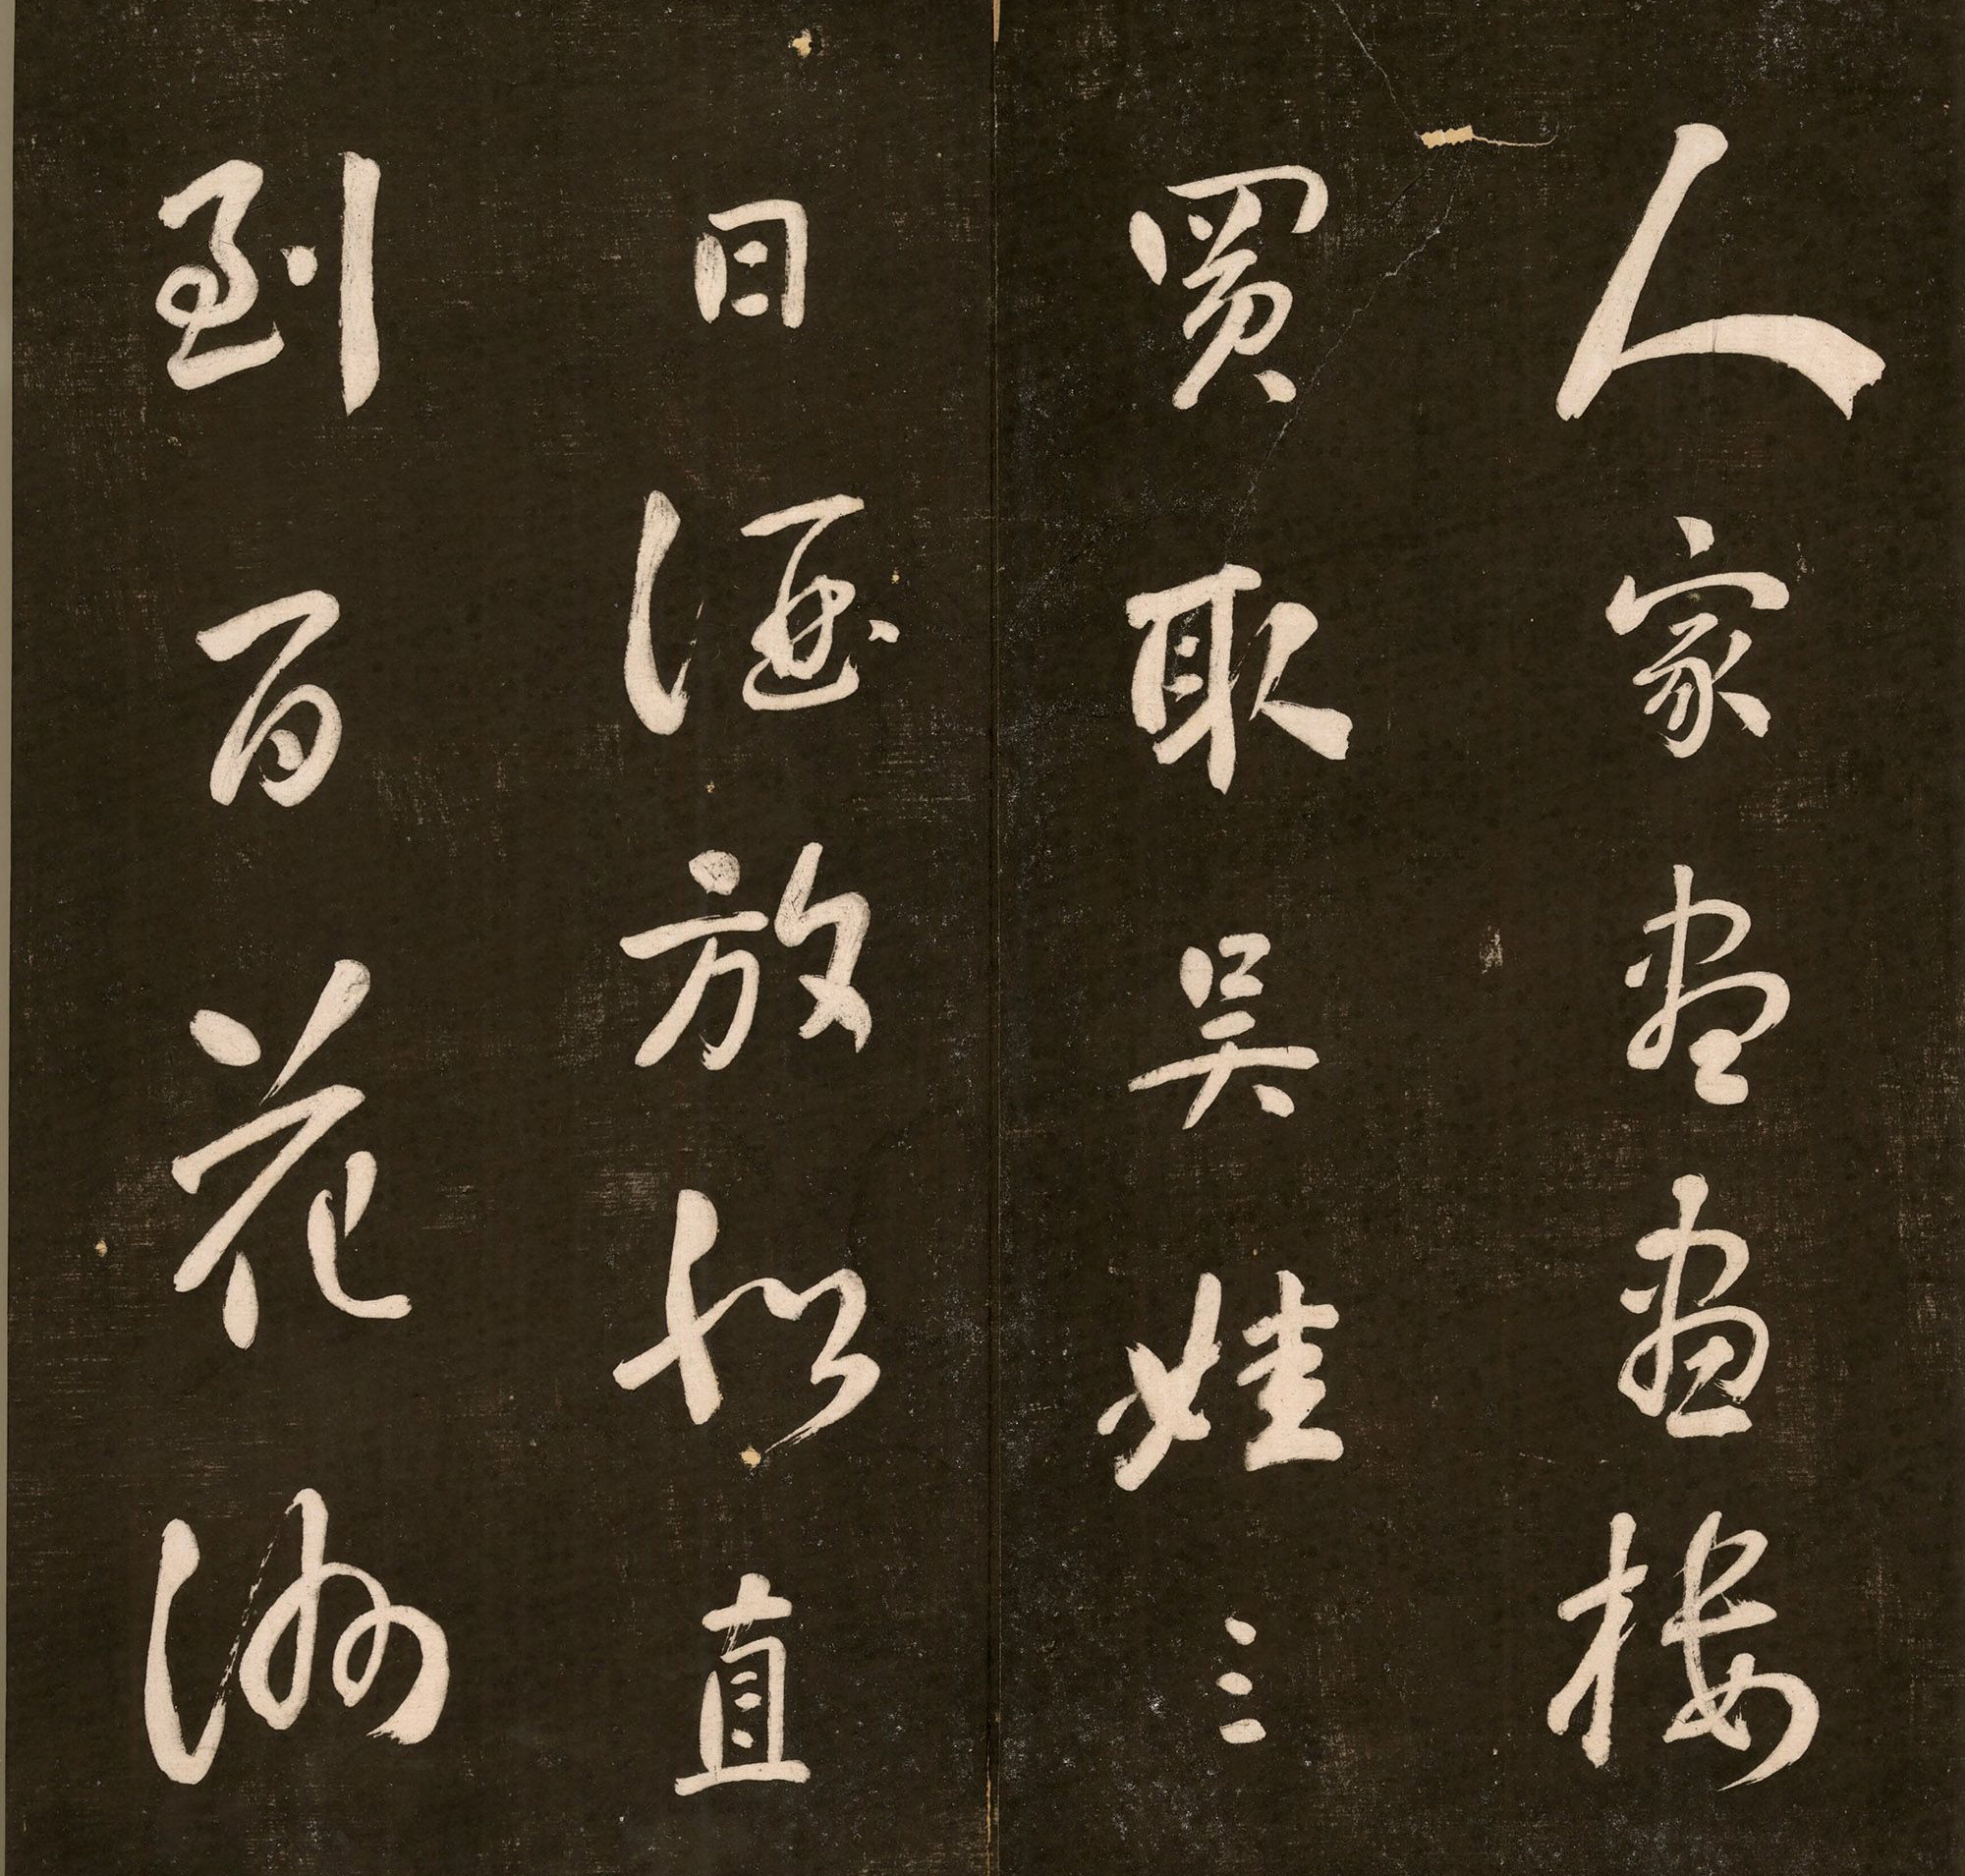 人家盡畫樓
買取吳娃三
日酒放船直
到百花洲